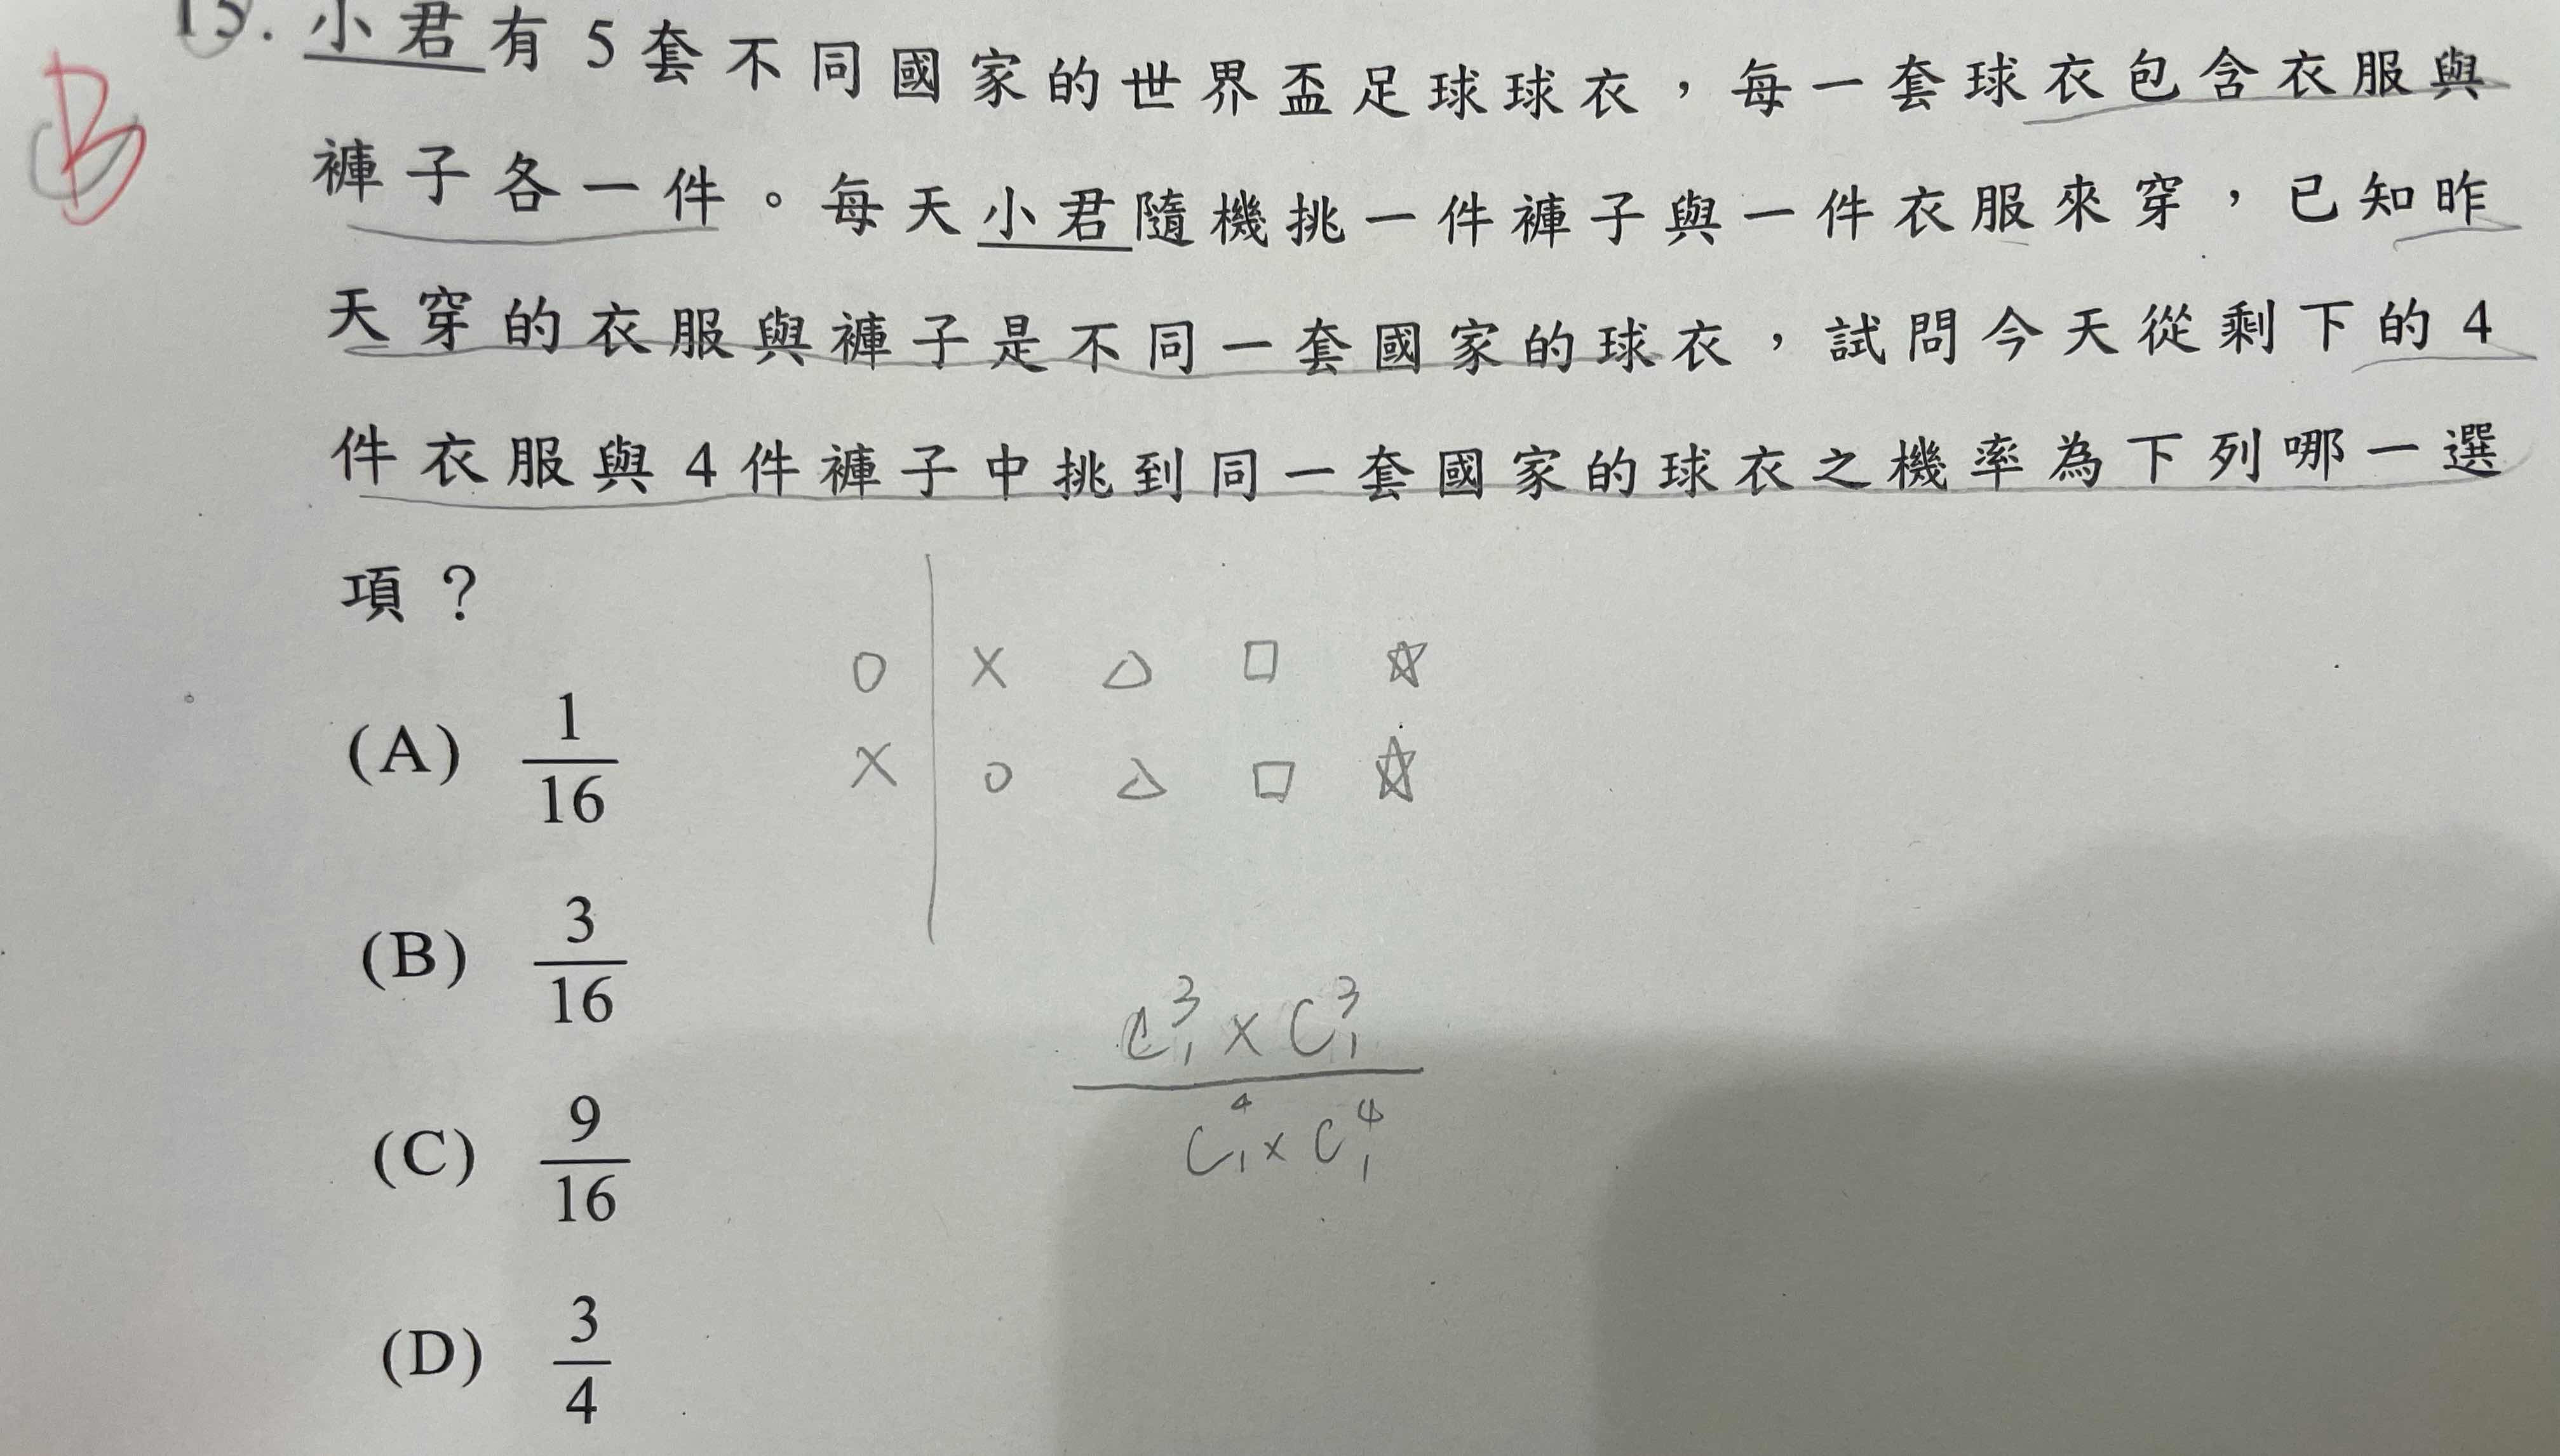 15. 小君有5套不同國家的世界盃足球球衣，每一套球衣包含衣服與
褲子各一件。每天小君隨機挑一件褲子與一件衣服來穿，已知昨
天穿的衣服與褲子是不同一套國家的球衣，試問今天從剩下的4
件衣服與4件褲子中挑到同一套國家的球衣之機率為下列哪一選
項？
B
○ × △ □ ☆
× ○ △ □ ☆
(A) 1/16
(B) 3/16
(C) 9/16
(D) 3/4
C³₁ × C³₁
C⁴₁ × C⁴₁